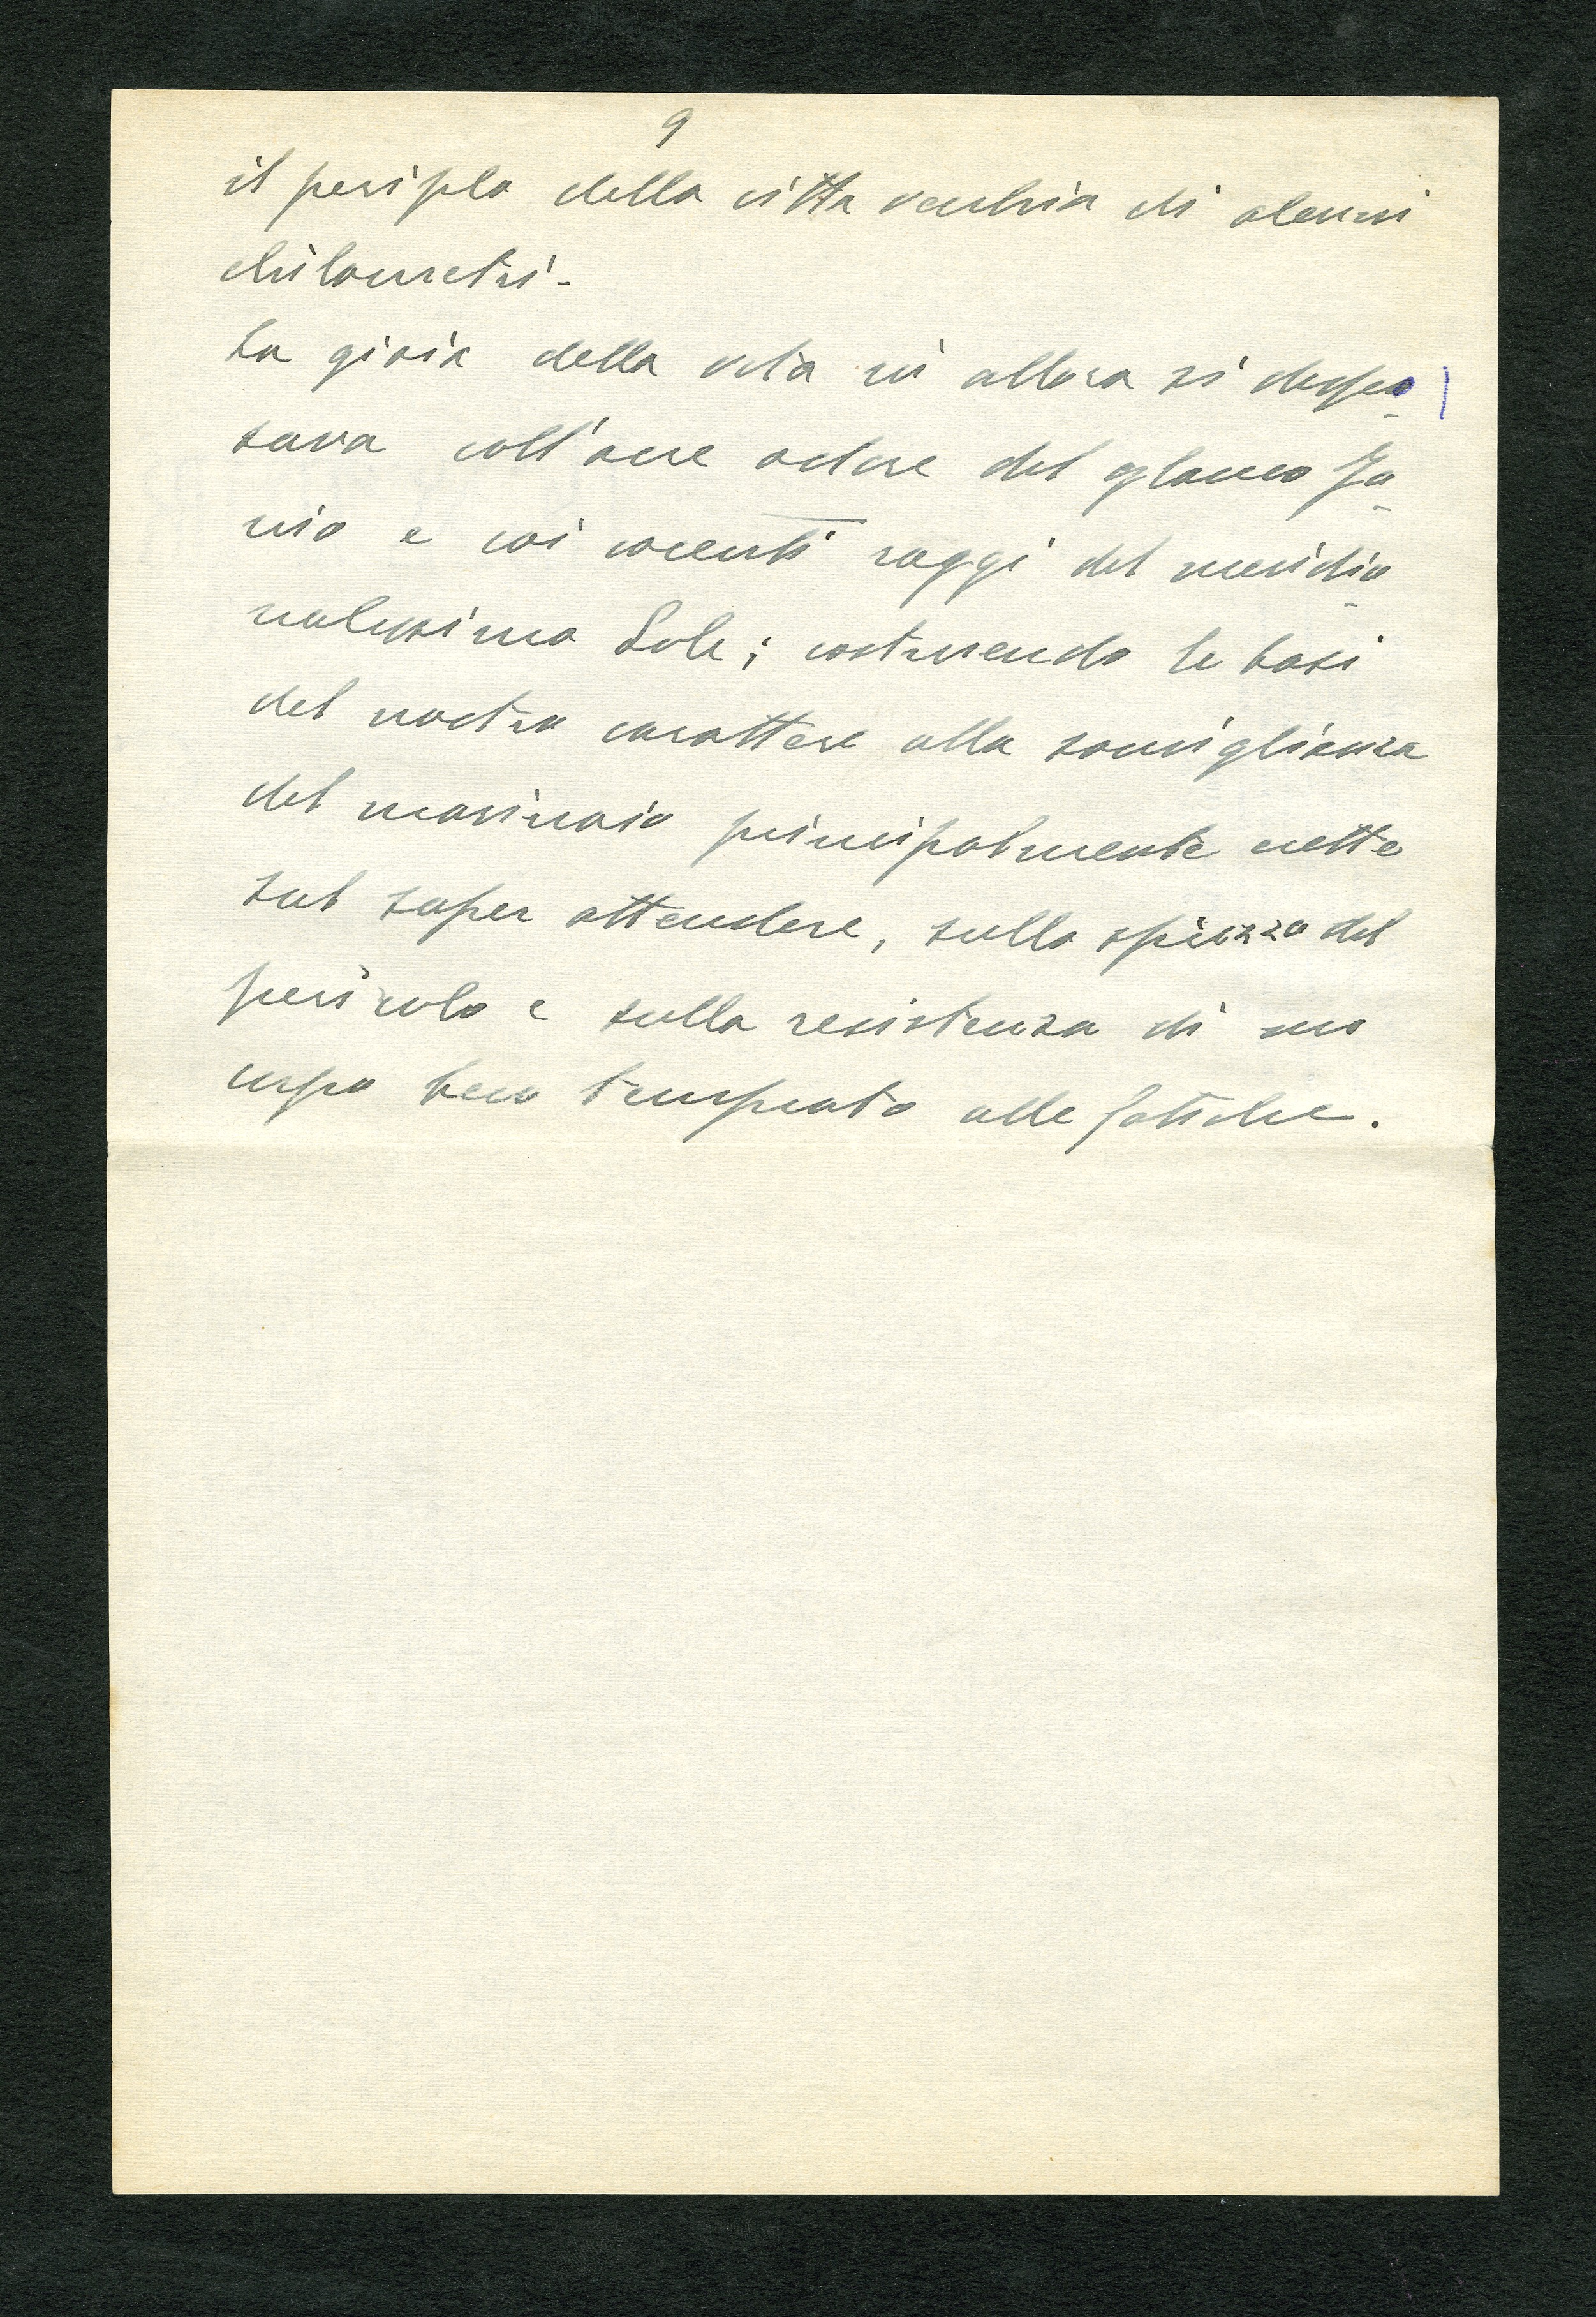 9
il periplo della citta vecchia di alcuni
chilometri-
La gioia della vita in allora si dispo-
sava coll'acre odore del glauco Jo-
nio e coi cocenti raggi del meridio-
nalissimo Sole; costruendo le basi
del nostro carattere alla somiglianza
del marinaio principalmente erette
sul saper attendere, sullo sprezzo del
pericolo e sulla resistenza di un
corpo ben temprato alle fatiche.